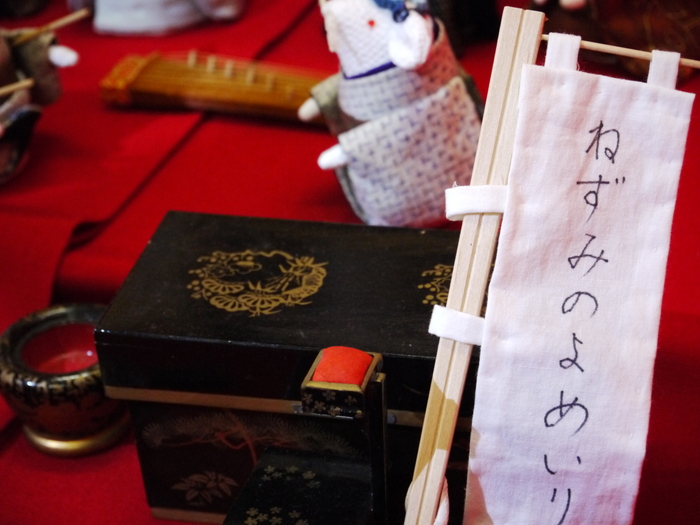 ねずみのよめいり